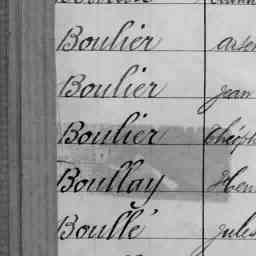 Boulier
Boulier Jean
Boulier
Boullay
Boullé Jules